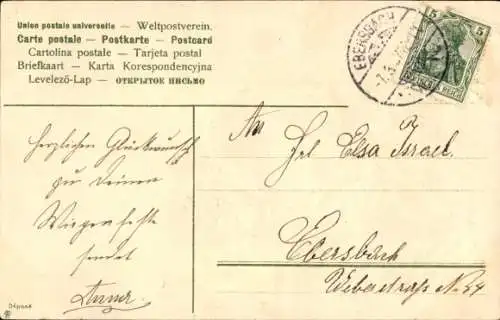 Union postale universelle — Weltpostverein.
Carte postale — Postkarte — Postcard
Cartolina postale — Tarjeta postal
Briefkaart — Karta Korespondencyjna
Levelező-Lap — ОТКРЫТОЕ ПИСЬМО
EBERSBACH
5 5
DEUTSCHES REICH
herzlichen Glückwunsch
zu Deinem
Wiegenfeste
sendet
Anna
An
Frl Elsa Israel.
Ebersbach
Weberstraße N. 34
Déposé